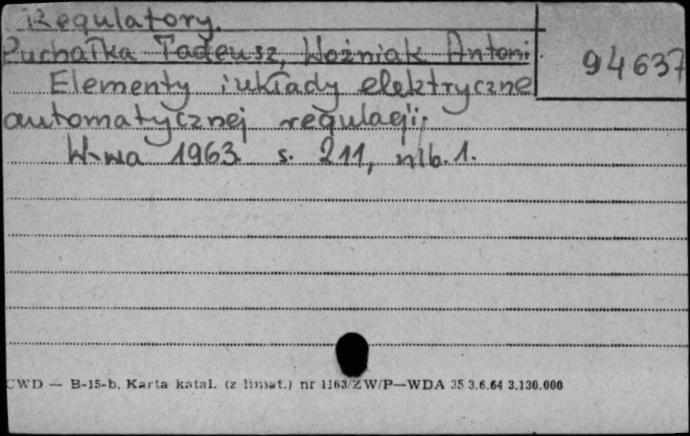 Regulatory.
Puchałka Tadeusz, Woźniak Antoni
94637
Elementy i układy elektryczne
automatycznej regulacji.
W-wa 1963 s. 211, nlb. 1.
CWD — B-15-b. Karta katal. (z limat.) nr 1163/ZW/P—WDA 35 3.6.64 3.130.000